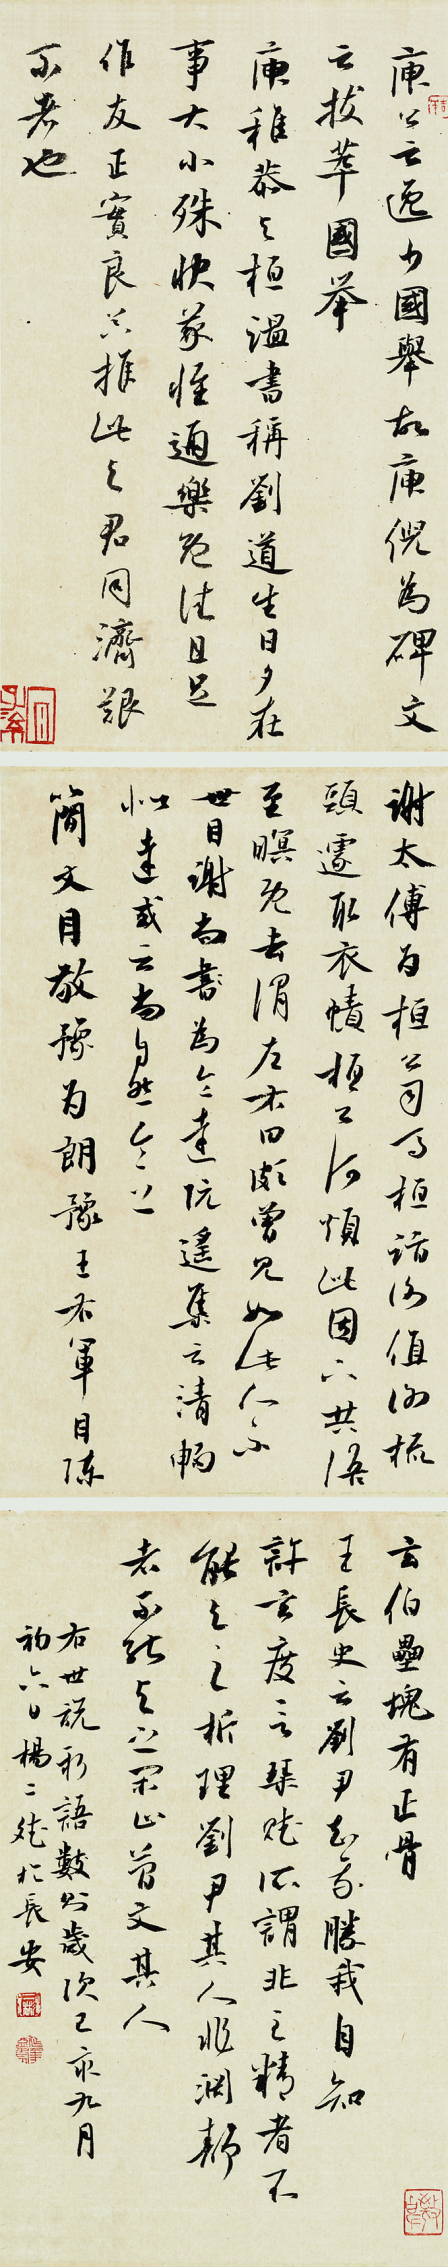 庾公云逸少國舉故庾倪為碑文
云拔萃國舉
庾稚恭與桓溫書稱劉道生日夕在
事大小殊快義懷通樂既佳且足
作友正實良器推此與君同濟艱
不者也
謝太傅為桓公司馬桓詣謝值謝梳
頭遽取衣幘桓公云何煩此因下共語
至暝既去謂左右曰頗曾見如此人不
世目謝尚書為令達阮遙集云清暢
似達或云尚自然令上
簡文目敬豫為朗豫王右軍目陳
玄伯壘塊有正骨
王長史云劉尹知我勝我自知
許玄度言琴賦所謂非至精者不
能與之析理劉尹其人非淵靜
者不能與之閑止簡文其人
右世說新語數則歲次己亥九月
初六日楊二斌於長安